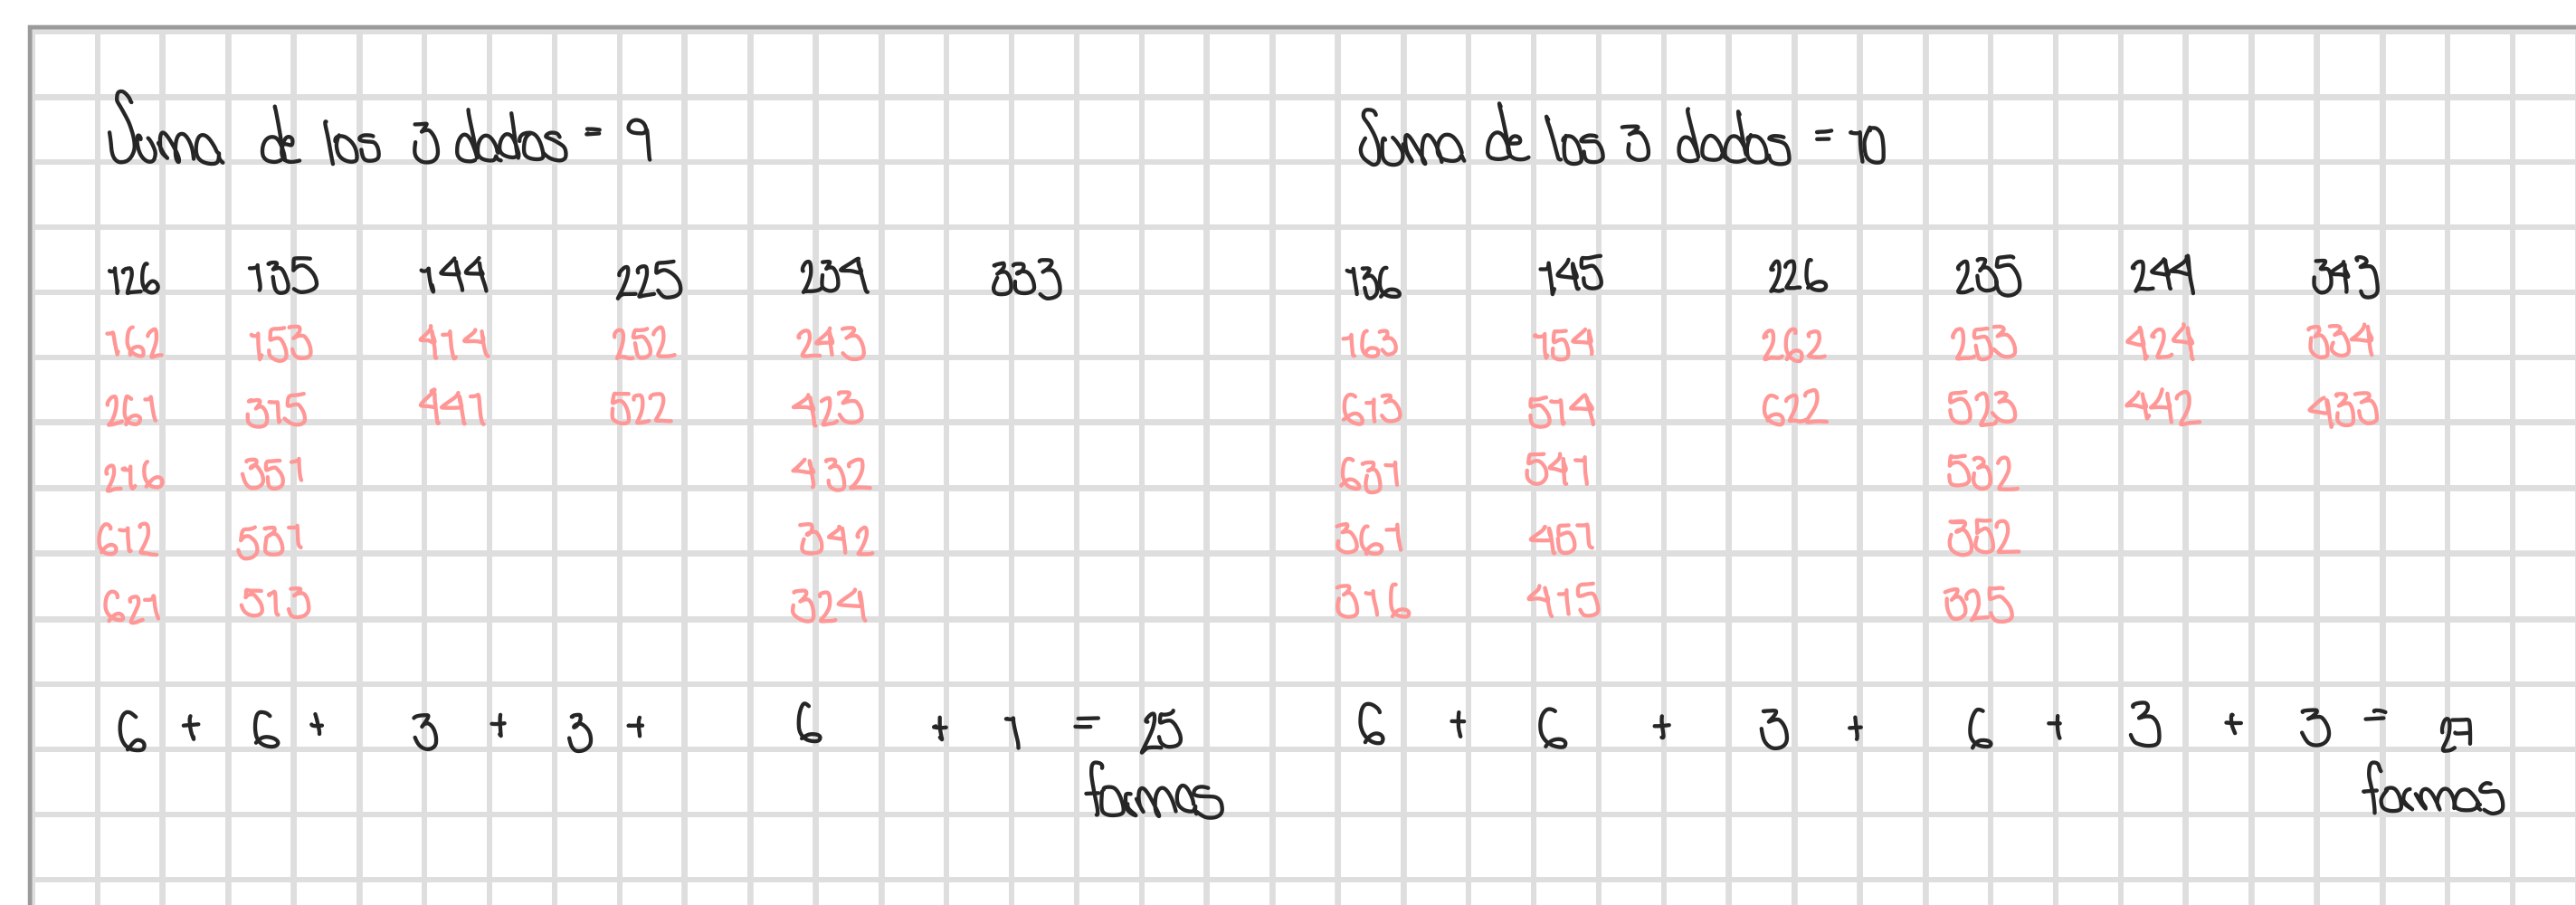 Suma de los 3 dados = 9
126 135 144 225 234 333
162 153 414 252 243
261 315 441 522 423
216 351 432
612 531 342
621 513 324
6 + 6 + 3 + 3 + 6 + 1 = 25
formas
Suma de los 3 dados = 10
136 145 226 235 244 343
163 154 262 253 424 334
613 514 622 523 442 433
631 541 532
361 451 352
316 415 325
6 + 6 + 3 + 6 + 3 + 3 = 27
formas